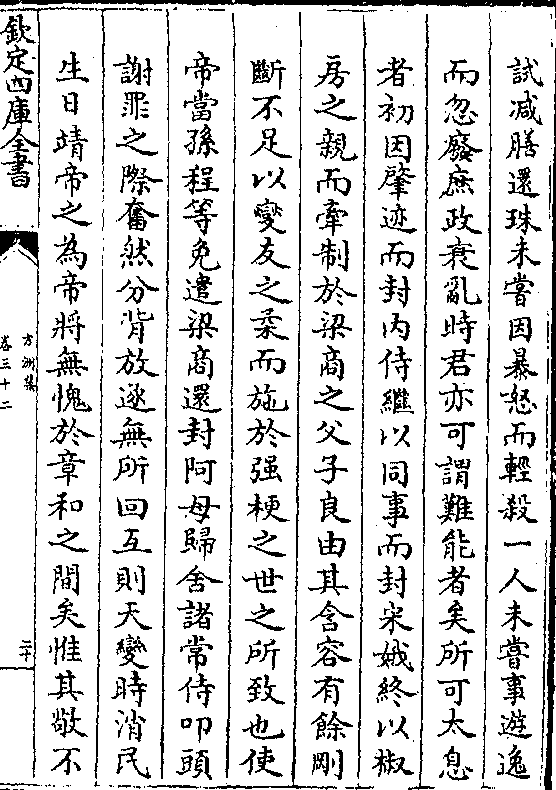 試減膳還珠未嘗因暴怒而輕殺一人未嘗事遊逸
而忽廢庶政衰亂時君亦可謂難能者矣所可太息
者初因肇迹而封内侍繼以同事而封宋娥終以椒
房之親而牽制於梁商之父子良由其含容有餘剛
斷不足以變友之柔而施於强梗之世之所致也使
帝當孫程等免遣梁商還封阿母歸舍諸常侍叩頭
謝罪之際奮然分背放逐無所回互則天變時消民
生日靖帝之為帝將無愧於章和之間矣惟其敬不
欽定四庫全書
方洲集
卷三十二
二十